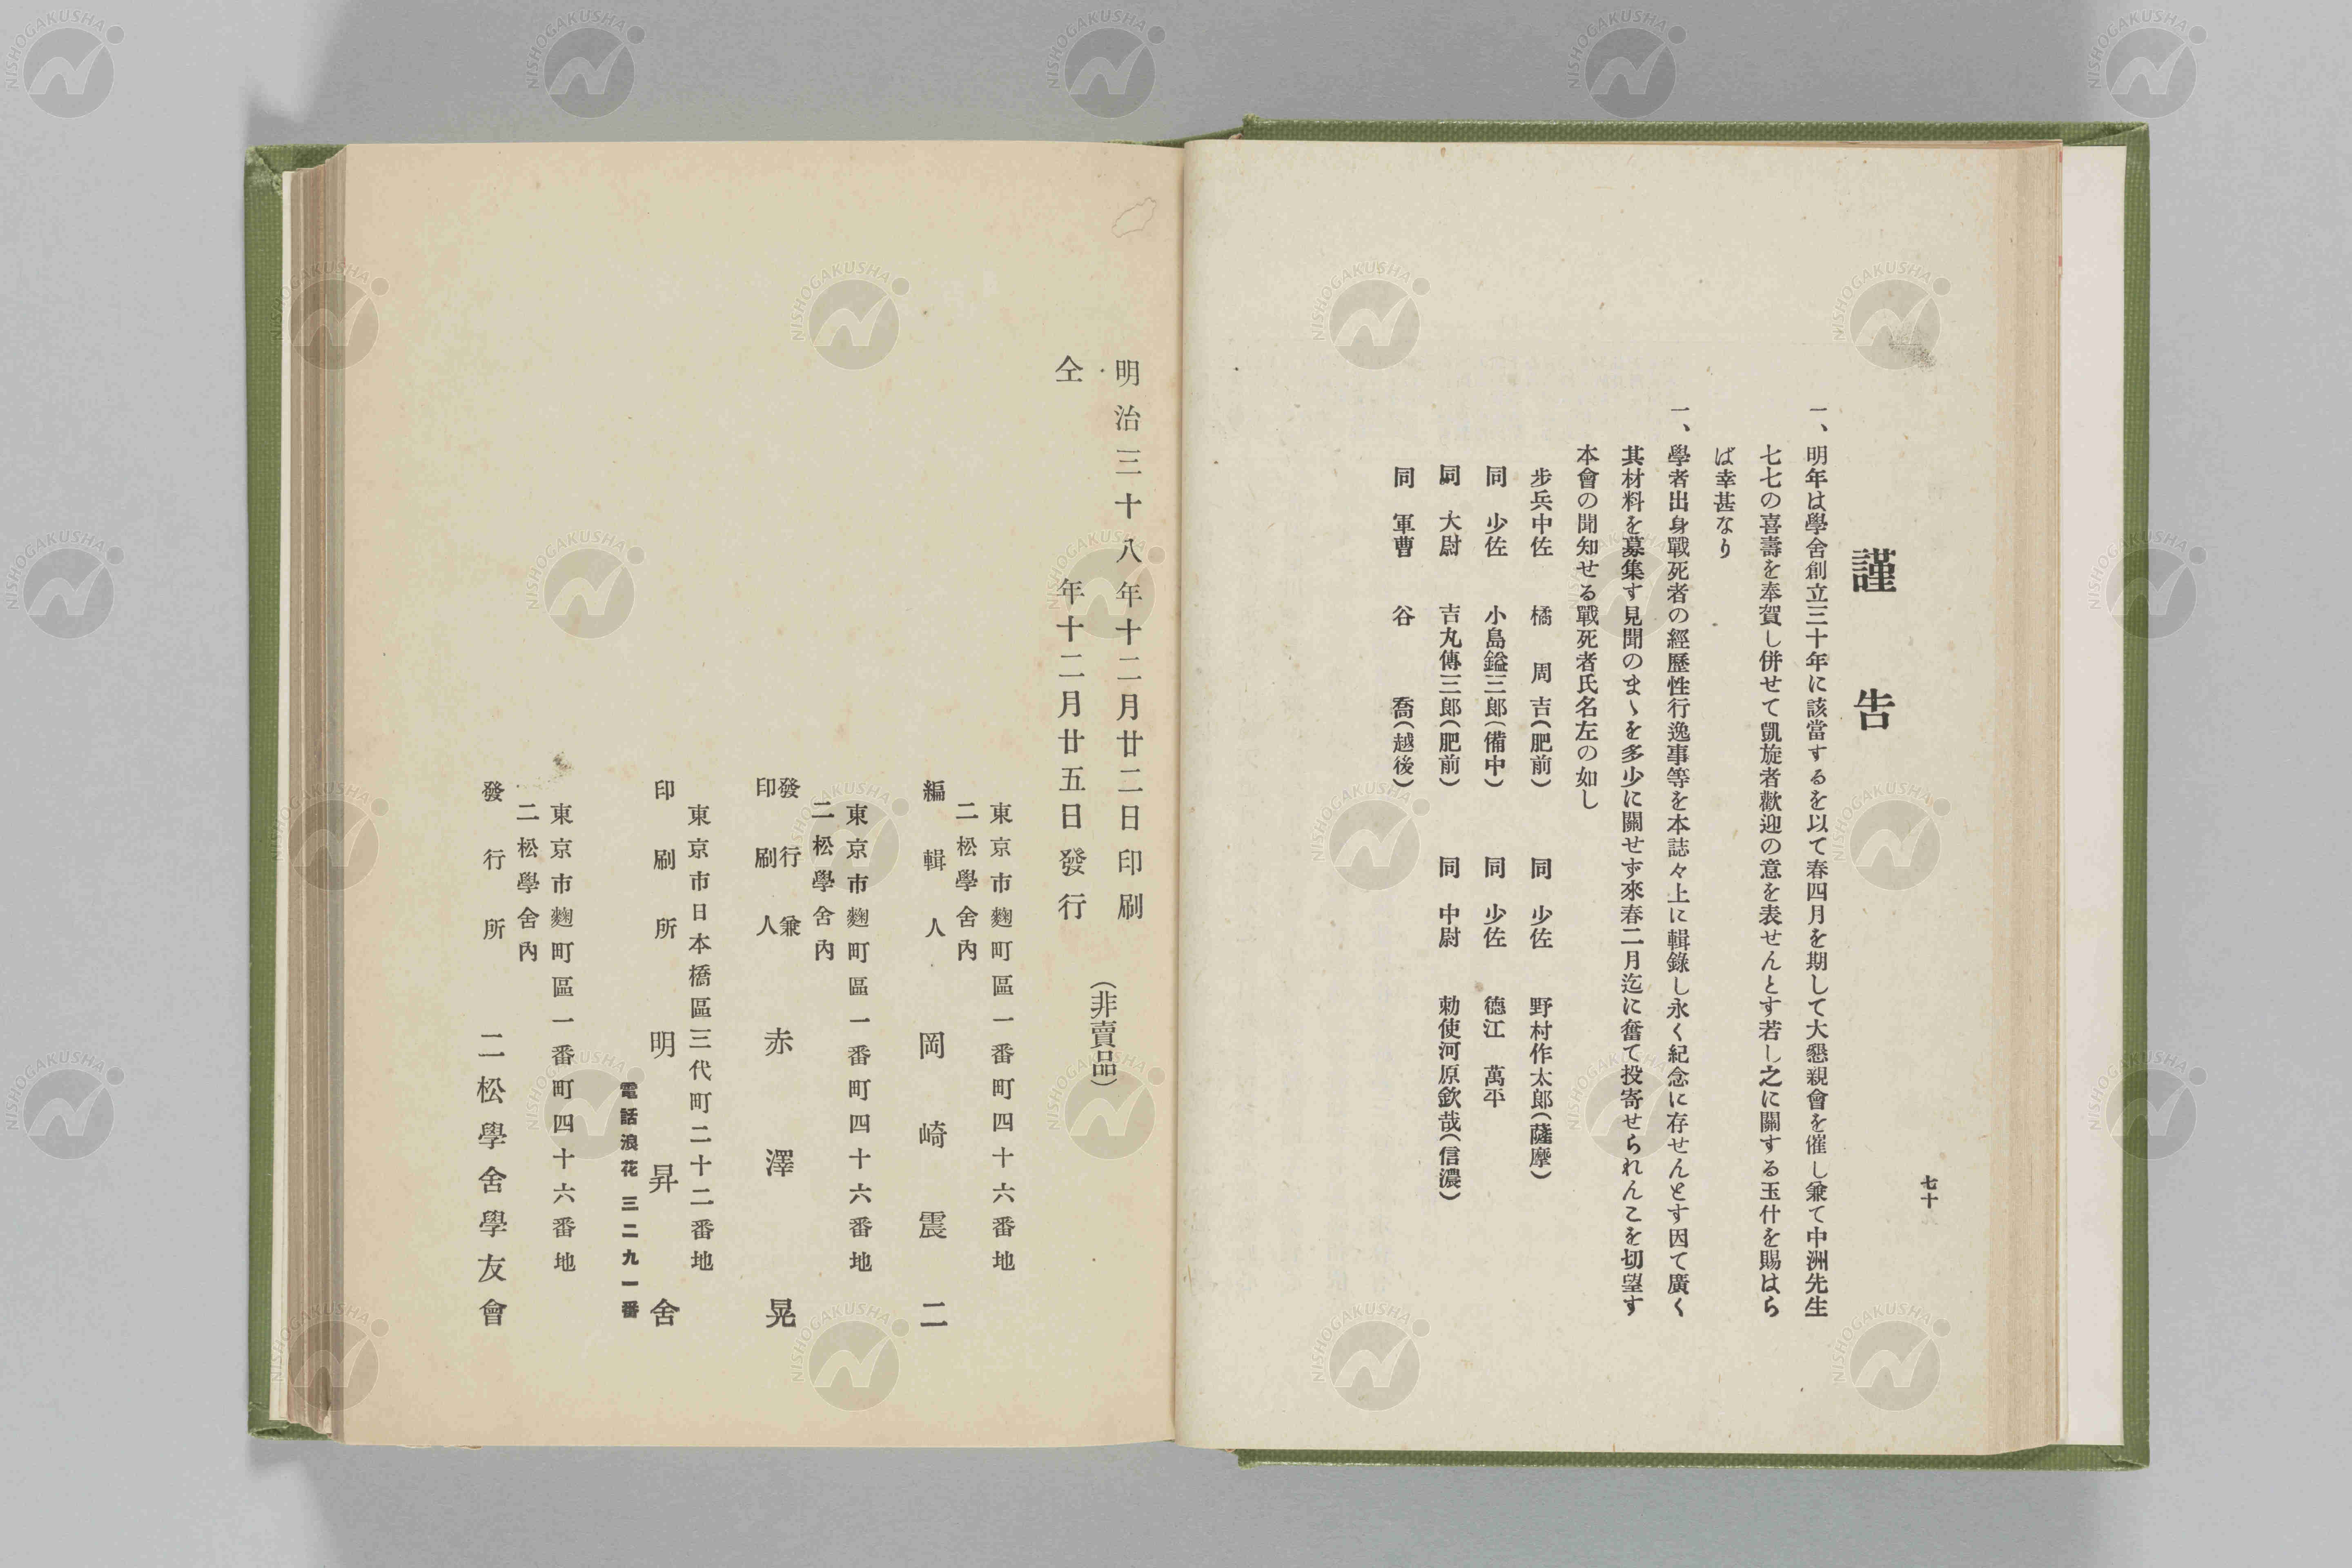 七十
謹告
一、明年は學舍創立三十年に該當するを以て春四月を期して大懇親會を催し兼て中洲先生
七七の喜壽を奉賀し併せて凱旋者歡迎の意を表せんとす若し之に關する玉什を賜はら
ば幸甚なり
一、學者出身戰死者の經歷性行逸事等を本誌々上に輯錄し永く紀念に存せんとす因て廣く
其材料を募集す見聞のまゝを多少に關せず來春二月迄に奮て投寄せられんこを切望す
本會の聞知せる戰死者氏名左の如し
步兵中佐 橘周吉(肥前) 同少佐 野村作太郎(薩摩)
同少佐 小島鎰三郎(備中) 同少佐 德江萬平
同大尉 吉丸傳三郎(肥前) 同中尉 勅使河原欽哉(信濃)
同軍曹 谷喬(越後)
明治三十八年十二月廿二日印刷
(非賣品)
仝年十二月廿五日發行
東京市麴町區一番町四十六番地
二松學舍內
編輯人 岡崎震二
東京市麴町區一番町四十六番地
二松學舍內
發行兼
印刷人 赤澤晃
東京市日本橋區三代町二十二番地
印刷所 明昇舍
電話浪花三二九一番
東京市麴町區一番町四十六番地
二松學舍內
發行所 二松學舍學友會
NISHOGAKUSHA